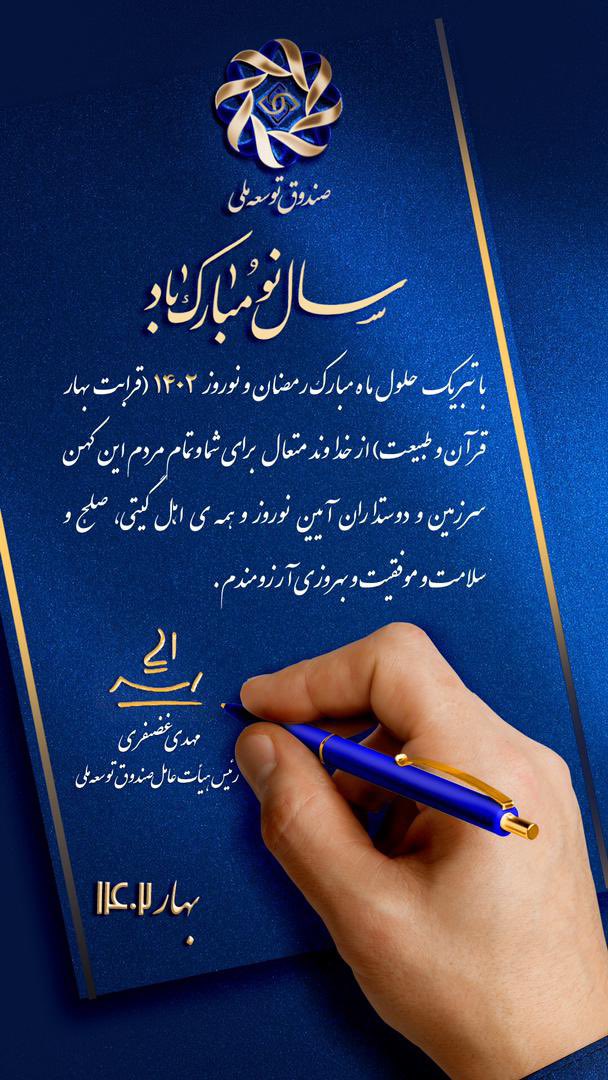 صندوق توسعه ملی
سال نو مبارک باد
با تبریک حلول ماه مبارک رمضان و نوروز ۱۴۰۲ (قرابت بهار
قرآن و طبیعت) از خداوند متعال برای شما و تمام مردم این کهن
سرزمین و دوستداران آیین نوروز و همه ی اهل گیتی، صلح و
سلامت و موفقیت و بهروزی آرزومندم.
مهدی غضنفری
رئیس هیأت عامل صندوق توسعه ملی
بهار ۱۴۰۲